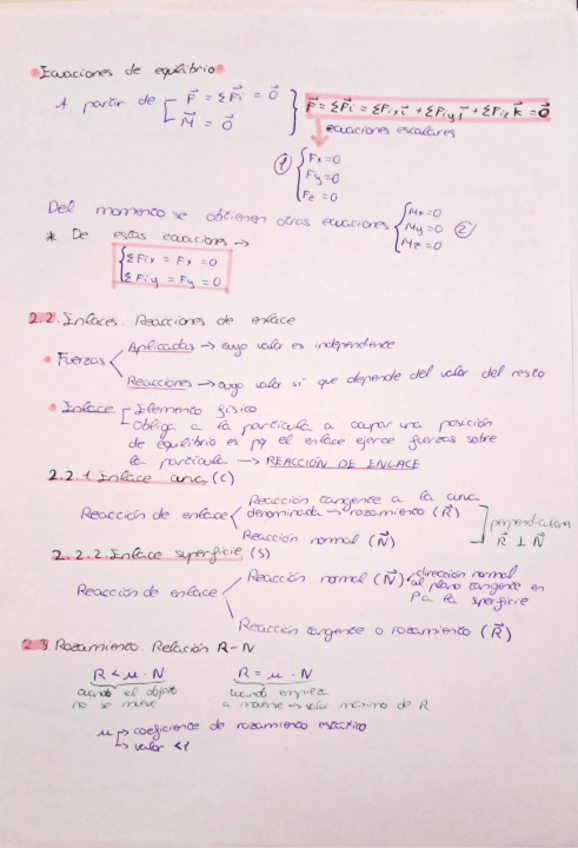 • Ecuaciones de equilibrio •
A partir de [ F⃗ = ΣF⃗i = 0⃗ } F⃗ = ΣF⃗i = ΣFix i⃗ + ΣFiy j⃗ + ΣFiz k⃗ = 0⃗
M⃗ = 0⃗
ecuaciones escalares
① { Fx = 0
Fy = 0
Fz = 0
Del momento se obtienen otras ecuaciones { Mx = 0
My = 0 ②
Mz = 0
* De estas ecuaciones →
{ ΣFix = Fx = 0
ΣFiy = Fy = 0
2.2. Enlaces. Reacciones de enlace
• Fuerzas < Aplicadas → cuyo valor es independiente
Reacciones → cuyo valor sí que depende del valor del resto
• Enlace [ Elemento físico
obliga a la partícula a ocupar una posición
de equilibrio es pq el enlace ejerce fuerzas sobre
la partícula → REACCIÓN DE ENLACE
2.2.1 Enlace curva (C)
Reacción de enlace < Reacción tangente a la curva
denominada → rozamiento (R⃗)
Reacción normal (N⃗)
] perpendiculares
R⃗ ⊥ N⃗
2.2.2. Enlace superficie (S)
Reacción de enlace < Reacción normal (N⃗) dirección normal
al plano tangente en
P a la superficie
Reacción tangente o rozamiento (R⃗)
2.3. Rozamiento. Relación R-N
R < μ · N R = μ · N
cuando el objeto cuando empieza
no se mueve a moverse → valor máximo de R
μ → coeficiente de rozamiento estático
→ valor < 1